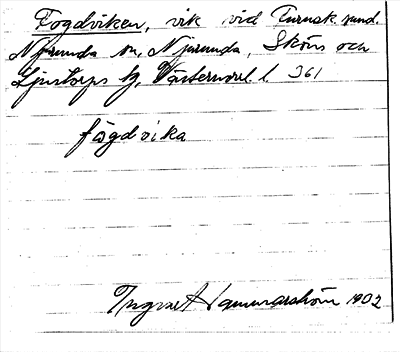 Fogdviken, vik vid Svensk sund.
Njurunda sn, Njurunda, Sköns och
Ljustorps tg, Västernorrl. l. 361
fögdvika
Ingvar Hammarström 1902